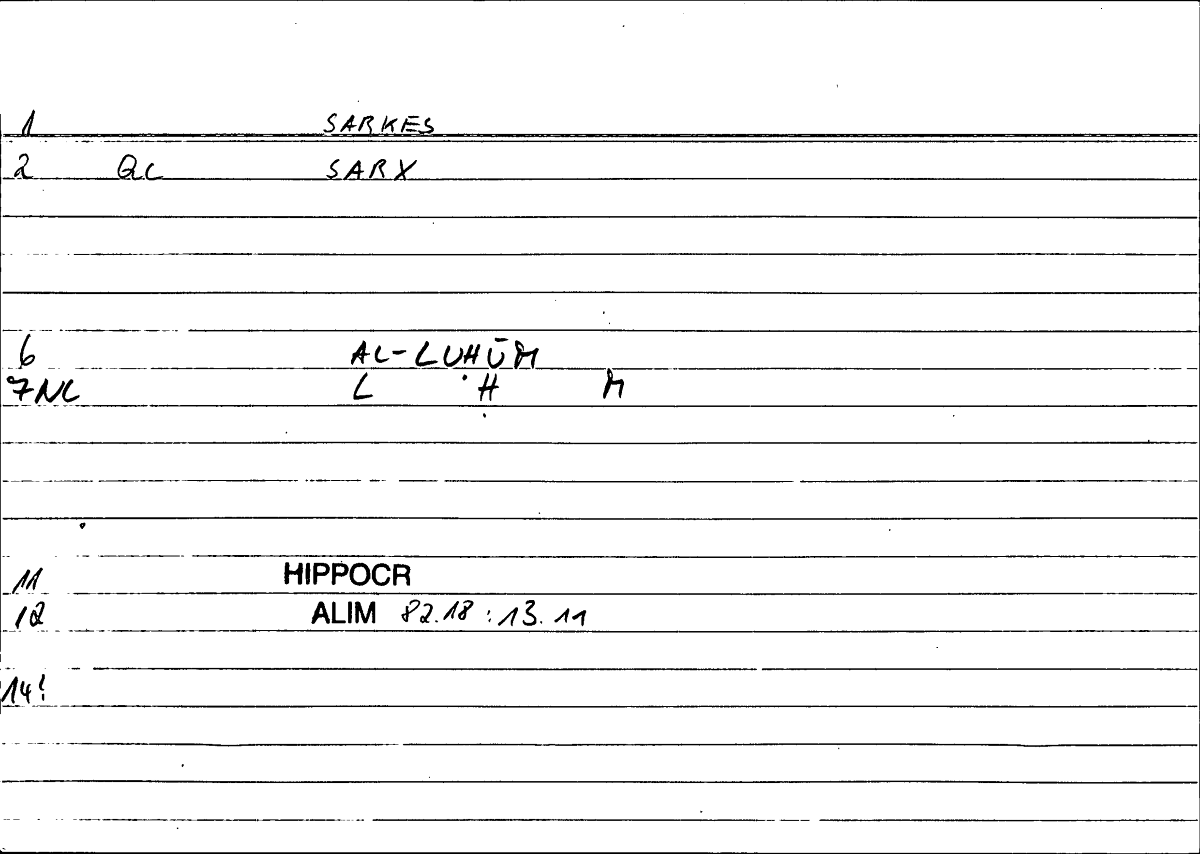 1 SARKES
2 QC SARX
6 AL-LUḤŪM
7NC L Ḥ M
11 HIPPOCR
12 ALIM 82.18:13.11
14!